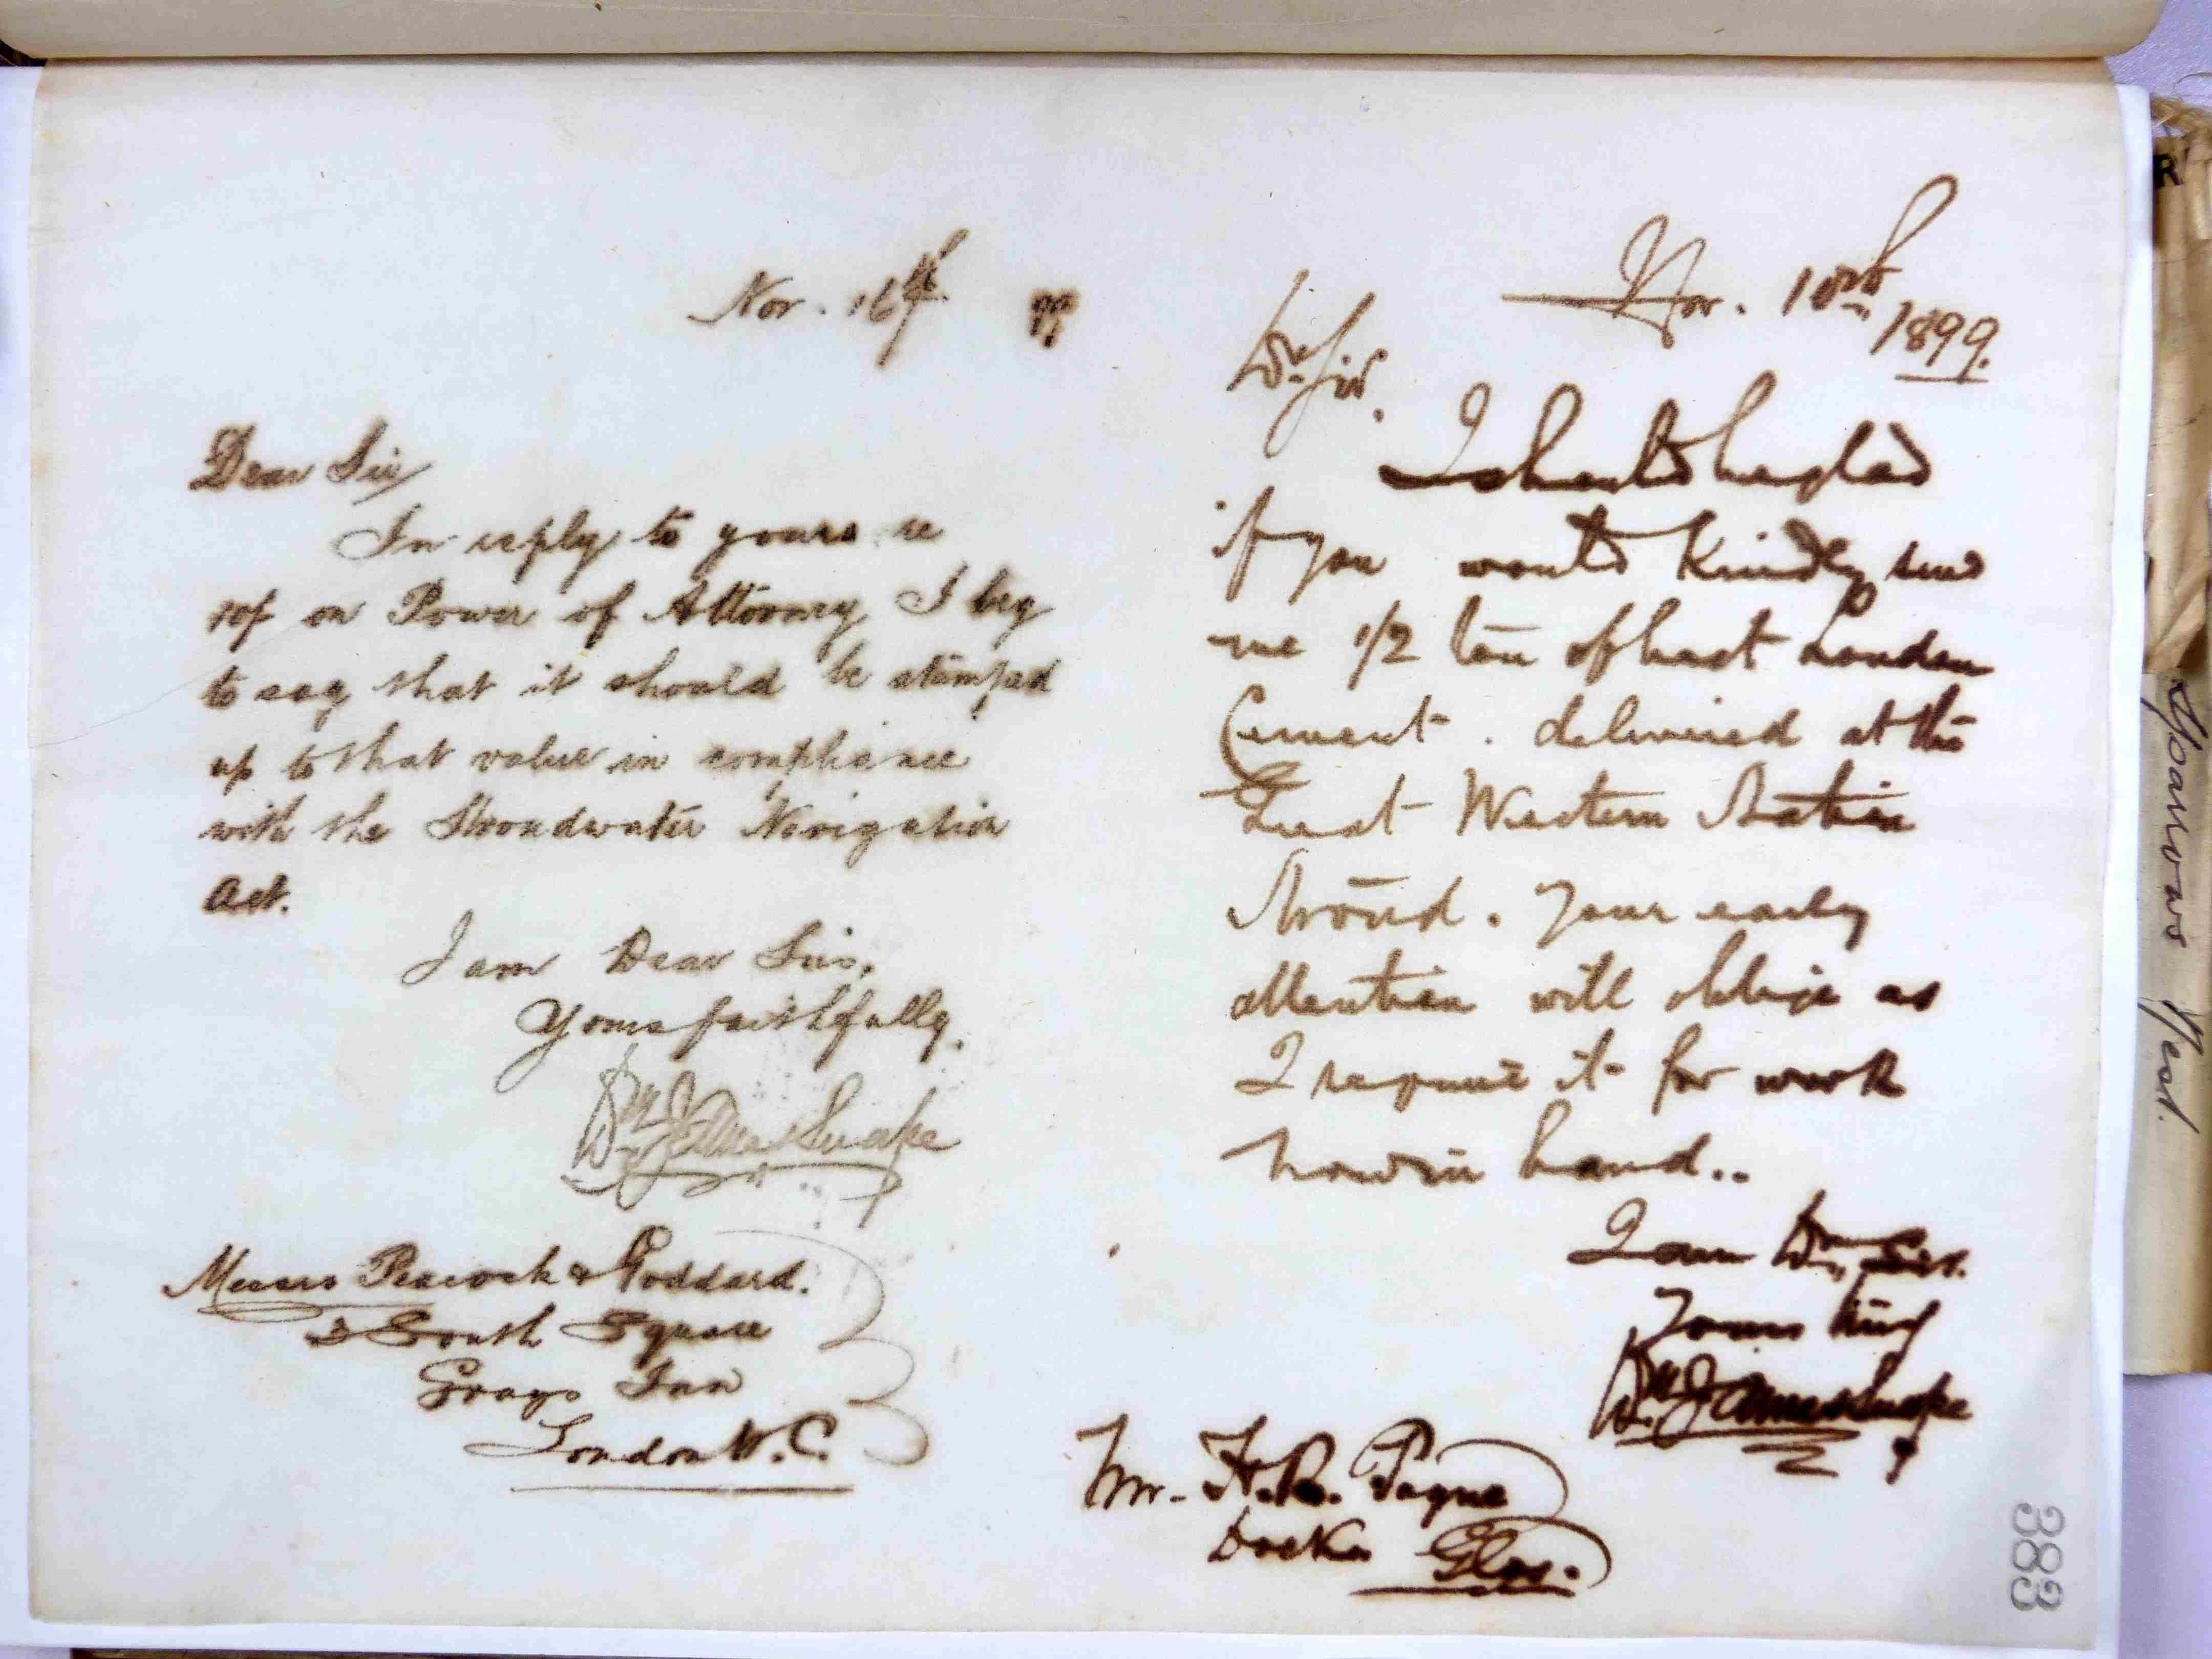 Nov. 16th 99
Dear Sir/
In reply to yours re
10/- on Power of Attorney I beg
to say that it should be stamped
up to that value in compliance
with the Stroudwater Navigation
Act.
I am Dear Sirs,
Yours faithfully.
Wm. James Snape
Messrs Peacock & Goddard.
3 South Square
Grays Inn
London W.C.
Nov. 18th
1899.
Dr Sir.
I should be glad
if you would kindly send
me 1/2 ton of best London
Cement. delivered at the
Great Western Station
Stroud. Your early
attention will oblige as
I require it for work
now in hand..
I am Dr. Sir.
Yours truly
Wm. James Snape
Mr. H.R. Payne
Docks Glos.
383
Yoarwars West.